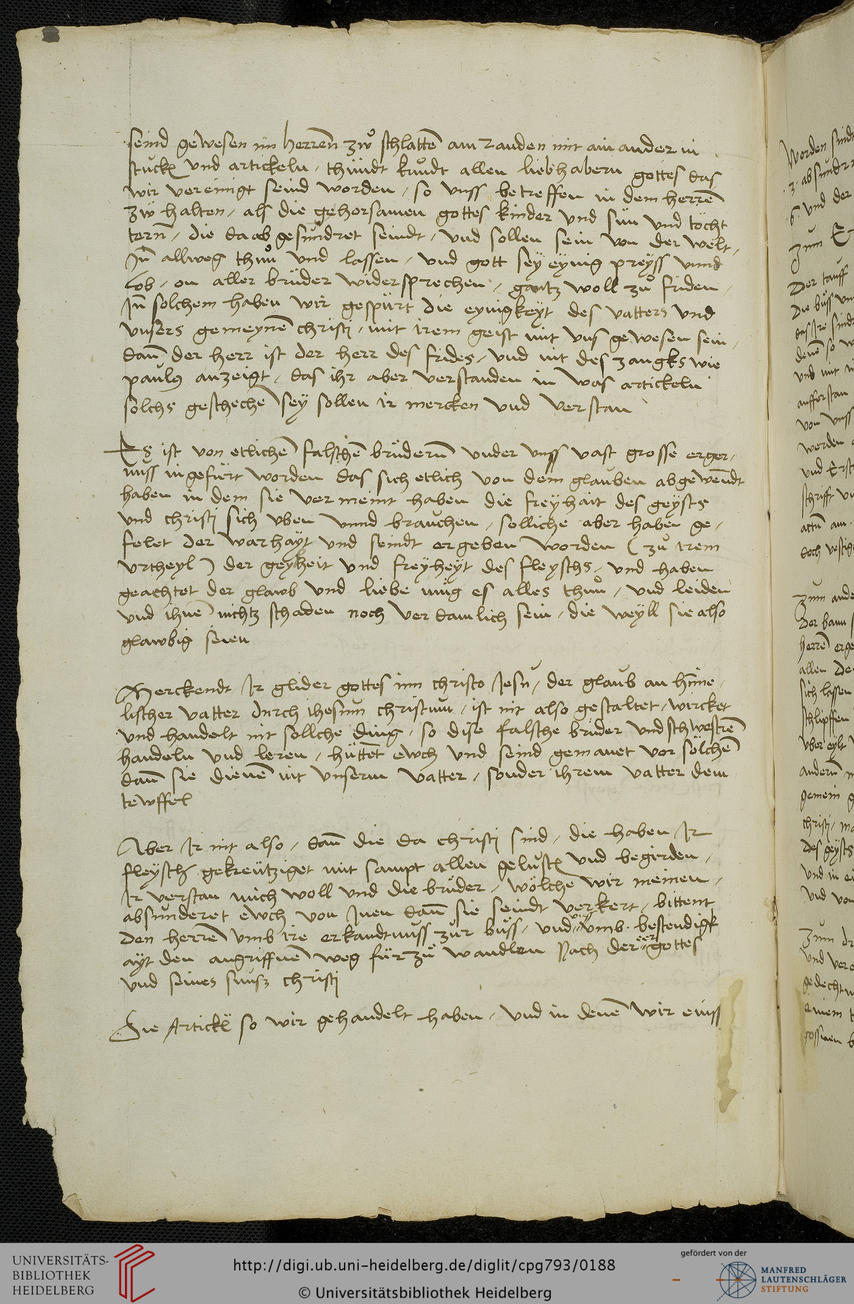 seind gewesen im herren zů schlatten am randen mit ain ander in
stuckn vnd artickeln / thundt kundt allen liebhabern gottes das
wir vereinigt seind worden / so vnss betreffen in dem herren
zů halten / als die gehorsamen gottes kinder vnd sün vnd töcht
tern / die da abgesündret seindt / vnd sollen sein von der welt /
Jn allweg thun vnd lassen / vnd gott sey eynig preyss vnnd
lob / on aller brüder widersprechen / gantz woll zů friden /
Jn solchem haben wir gespürt die eynigkeyt des vatters vnd
vnsers gemeynen christi / mit irem geist mit vns gewesen sein /
dann der herr ist der herr des frides / vnd nit des zangks wie
paulus anzeigt / das ihr aber verstanden in was artickeln
solchs gescheche sey sollen ir mercken vnd verstan
Es ist von etlichen falschen brüdern vnder vnss vast grosse erger /
nuss ingefürt worden das sich etlich von dem glauben abgewendt
haben in dem sie vermeint haben die freyhait des geysts
vnd christi sich vben vnnd brauchen / solliche aber haben ge /
felet der warhayt vnd seindt ergeben worden ( zů irem
vrtheyl ) der geylheit vnd freyheyt des fleyschs / vnd haben
geachtet der glawb vnd liebe müg es alles thun / vnd leiden
vnd ihne nichtz schaden noch verdamlich sein / die weyll sie also
glawbig seien
Merckendt Jr glider gottes inn christo Jesu / der glaub an hime /
lischer vatter durch ihesum christum / ist nit also gestaltet / wircket
vnd handelt nit solliche ding / so dise falsche brüder vnd schwestren
handeln vnd leren / hüttet ewch vnd seind gemanet vor sölchen
dann sie dienen nit vnserm vatter / sonder ihrem vatter dem
tewffel
Aber Jr nit also / dann die da christi sind / die haben Jr
fleysch gekreütziget mit sampt allen gelustn vnd begirden /
Jr verstan mich woll vnd die brüder / wölche wir meinen /
absünderet ewch von Jnen dann sie seindt verkert / bittent
den herren vmb ire erkandtnuss zur buss / vnd vmb bestendigk
ayt den angriffnen weg für zů wandlen Nach der eer gottes
vnd seines suns christi
Die Artickel so wir gehandelt haben / vnd in denen wir einss
UNIVERSITÄTS-
BIBLIOTHEK
HEIDELBERG
http://digi.ub.uni-heidelberg.de/diglit/cpg793/0188
© Universitätsbibliothek Heidelberg
gefördert von der
MANFRED
LAUTENSCHLÄGER
STIFTUNG